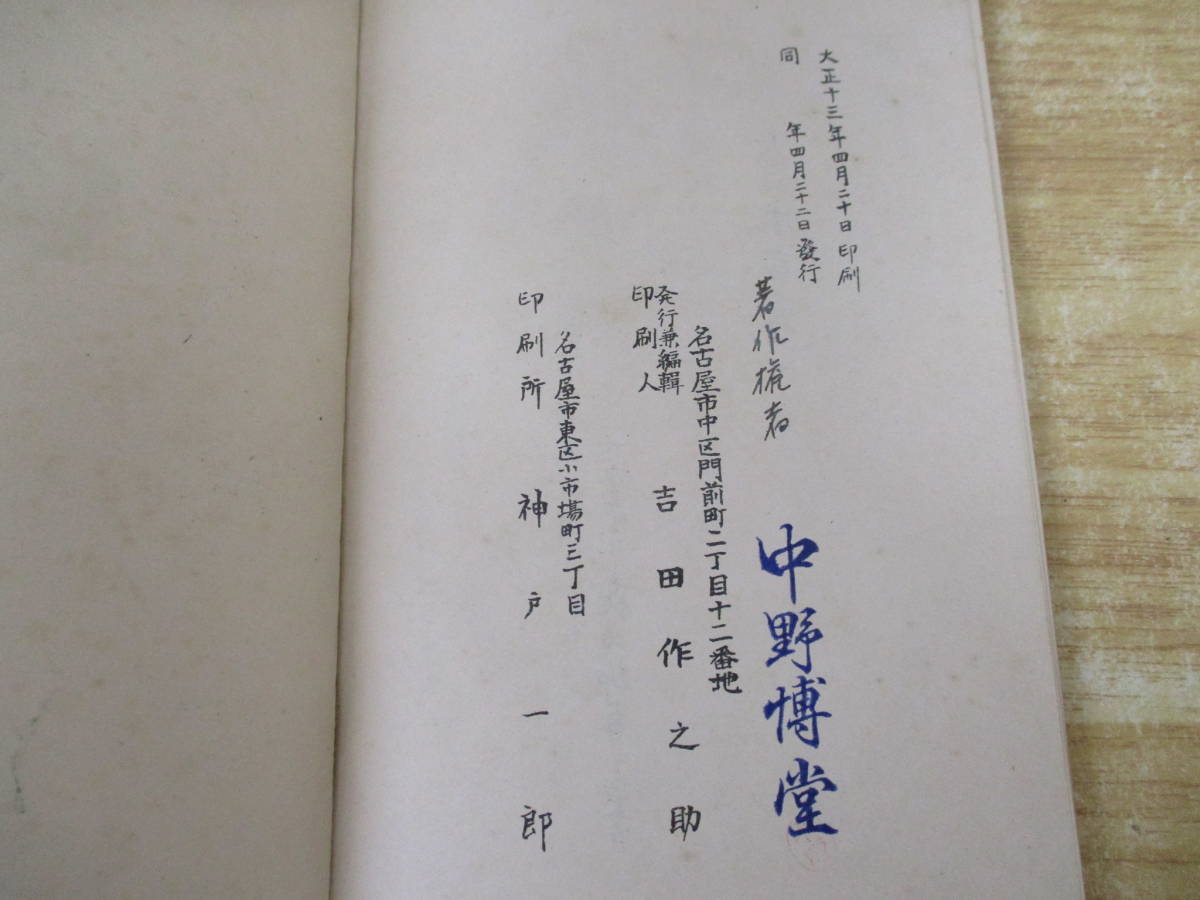 大正十三年四月二十日印刷
同　年四月二十二日發行
著作権者　中野博堂
名古屋市中区門前町二丁目十二番地
発行兼編輯
印刷人　吉田作之助
名古屋市東区小市場町三丁目
印刷所　神戸一郎